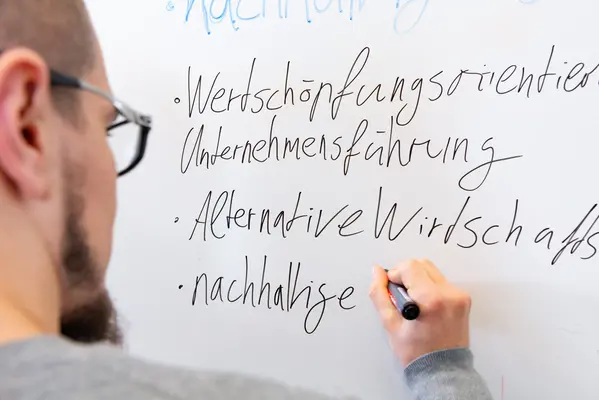 • Wertschöpfungsorientier
Unternehmensführung
• Alternative Wirdschafts
• nachhaltige